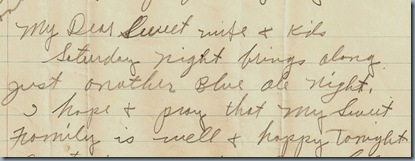 My Dear Sweet wife & Kids
Saturday night brings along
just another Blue ole night.
I hope & pray that my Sweet
Family is well & happy Tonight